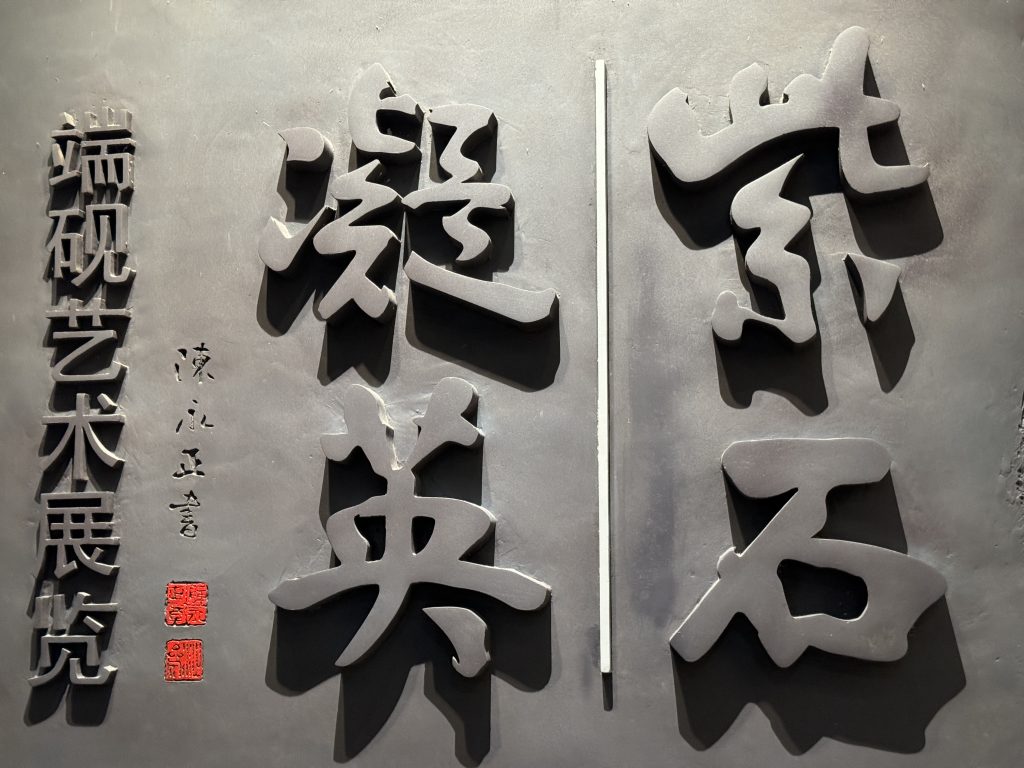 紫石
凝英
陳永正書
端砚艺术展览